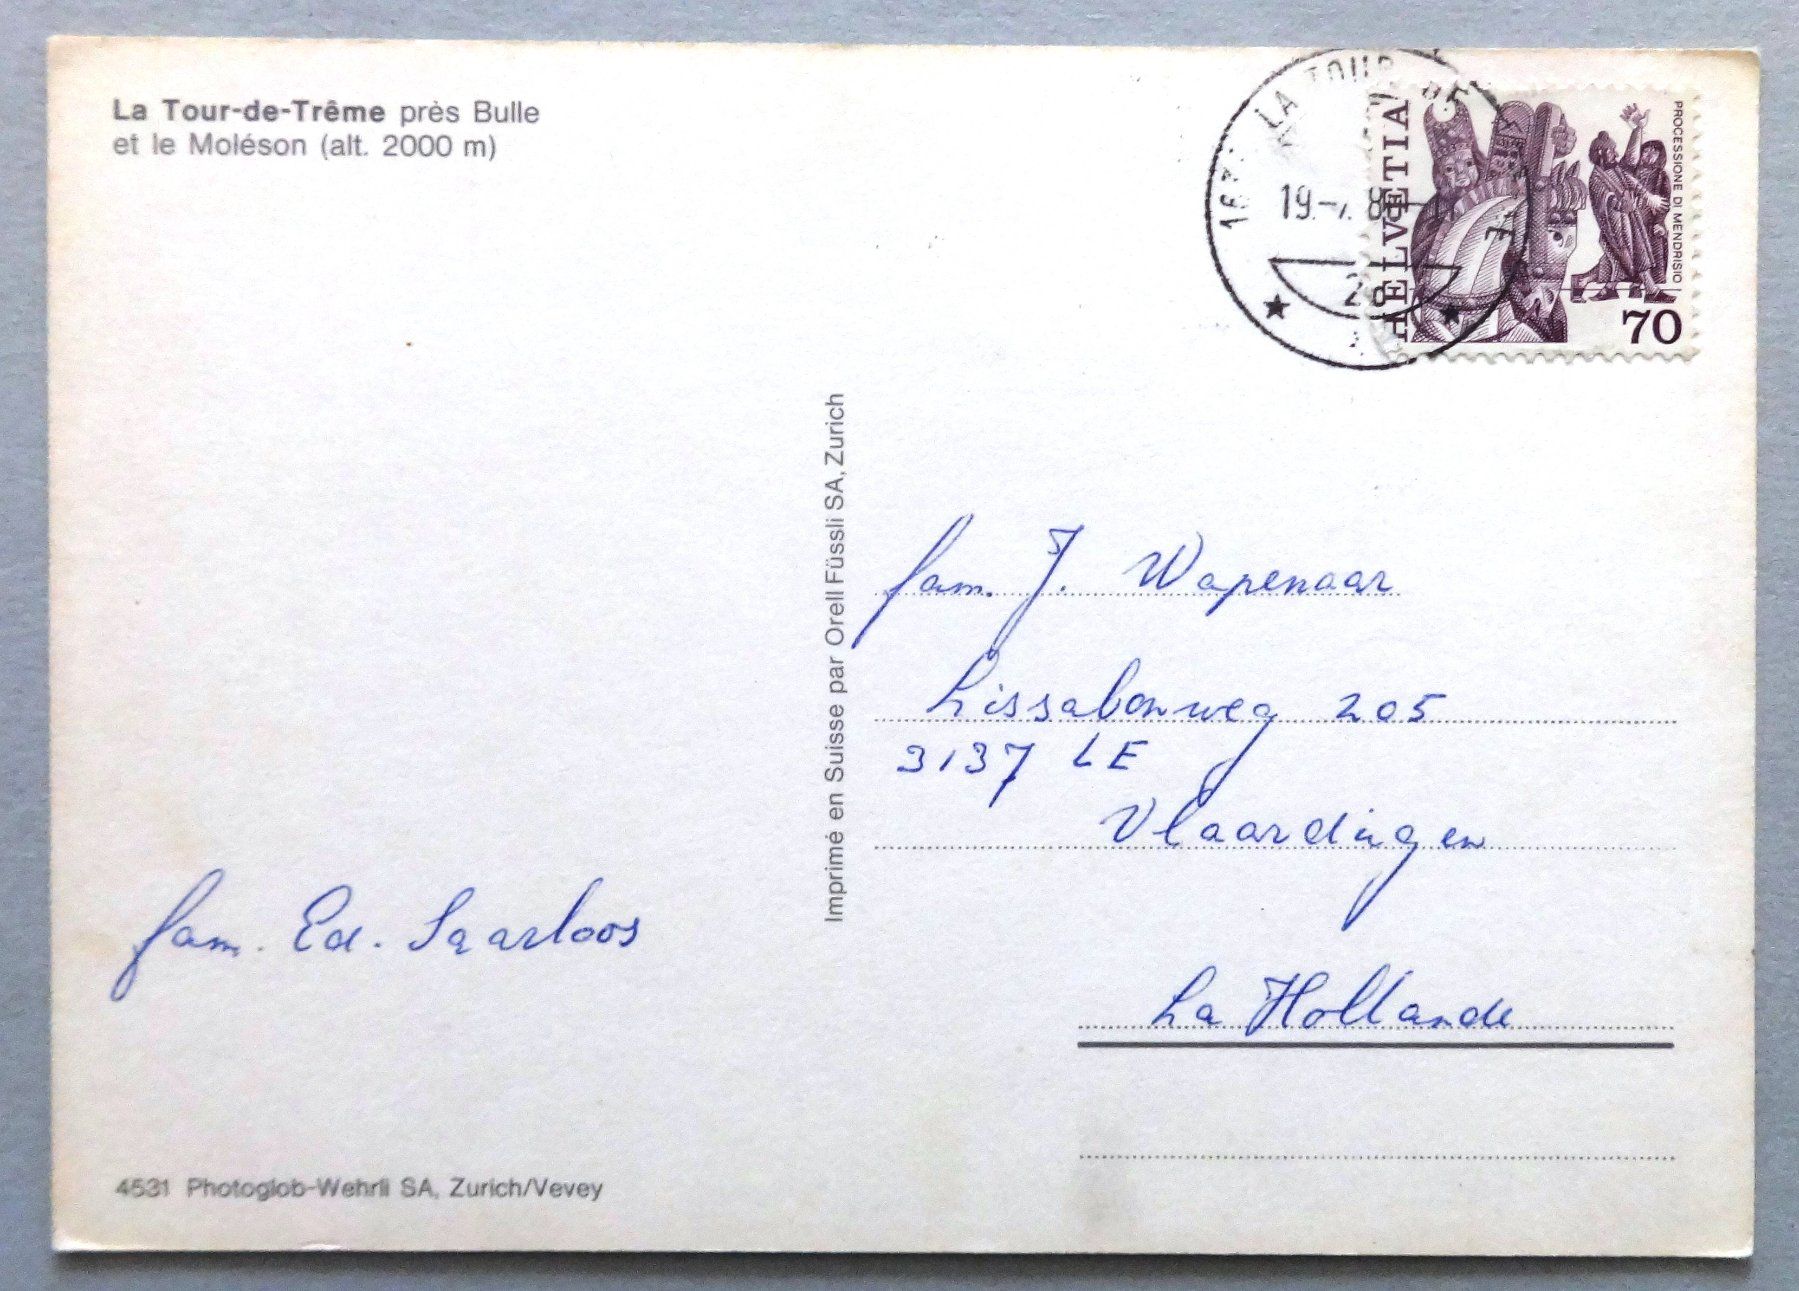 La Tour-de-Trême près Bulle
et le Moléson (alt. 2000 m)
LA TOUR
19.
HELVETIA
PROCESSIONE DI MENDRISIO
70
Imprimé en Suisse par Orell Füssli SA, Zurich
fam. J. Wapenaar
Lissabonweg 205
3137 LE
Vlaardingen
La Hollande
fam. Ed. Saarloos
4531 Photoglob-Wehrli SA, Zurich/Vevey